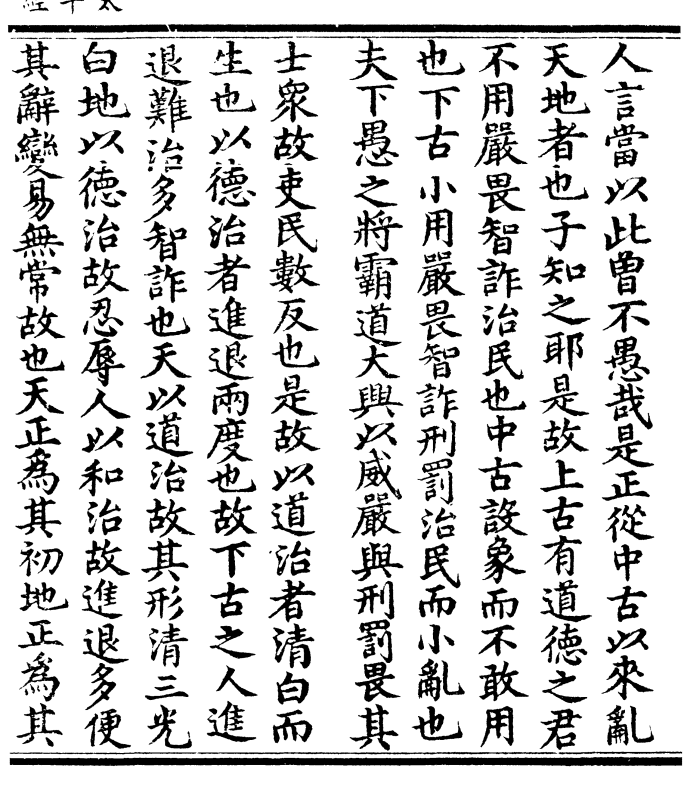 太平經
人言當以此曾不愚哉是正從中古以來亂
天地者也子知之耶是故上古有道德之君
不用嚴畏智詐治民也中古設象而不敢用
也下古小用嚴畏智詐刑罰治民而小亂也
夫下愚之將霸道大興以威嚴與刑罰畏其
士衆故吏民數反也是故以道治者清白而
生也以德治者進退兩度也故下古之人進
退難治多智詐也天以道治故其形清三光
白地以德治故忍辱人以和治故進退多便
其辭變易無常故也天正為其初地正為其